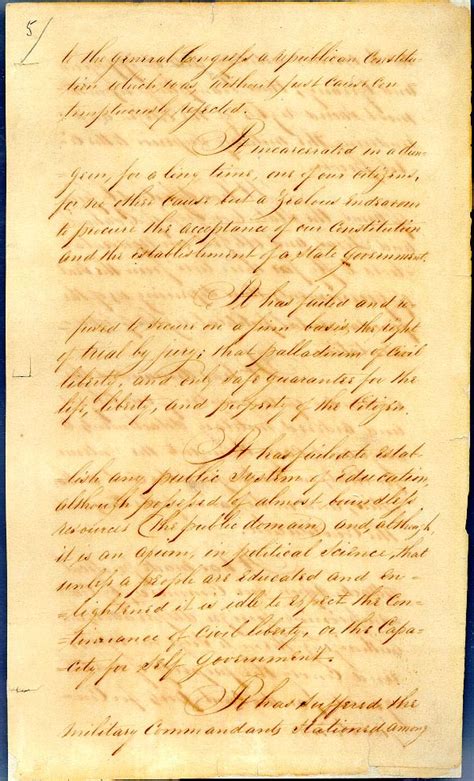 5
to the general Congress a republican Constitu-
-tion which was, without just cause con-
-temptuously rejected.
It incarcerated in a dun-
geon, for a long time, one of our citizens,
for no other cause but a zealous endeavour
to procure the acceptance of our Constitution
and the establishment of a state government.
It has failed and re-
-fused to secure on a firm basis, the right
of trial by jury; that palladium of civil
liberty, and only safe guarantee for the
life, liberty, and property of the Citizen.
It has failed to estab-
-lish any public System of Education,
although possessed of almost boundless
resources (the public domain) and, although,
it is an axiom, in political Science, that
unless a people are educated and en-
-lightened it is idle to expect the Con-
-tinuance of Civil liberty, or the Capa-
-city for Self Government.
It has suffered the
Military Commandants Stationed among